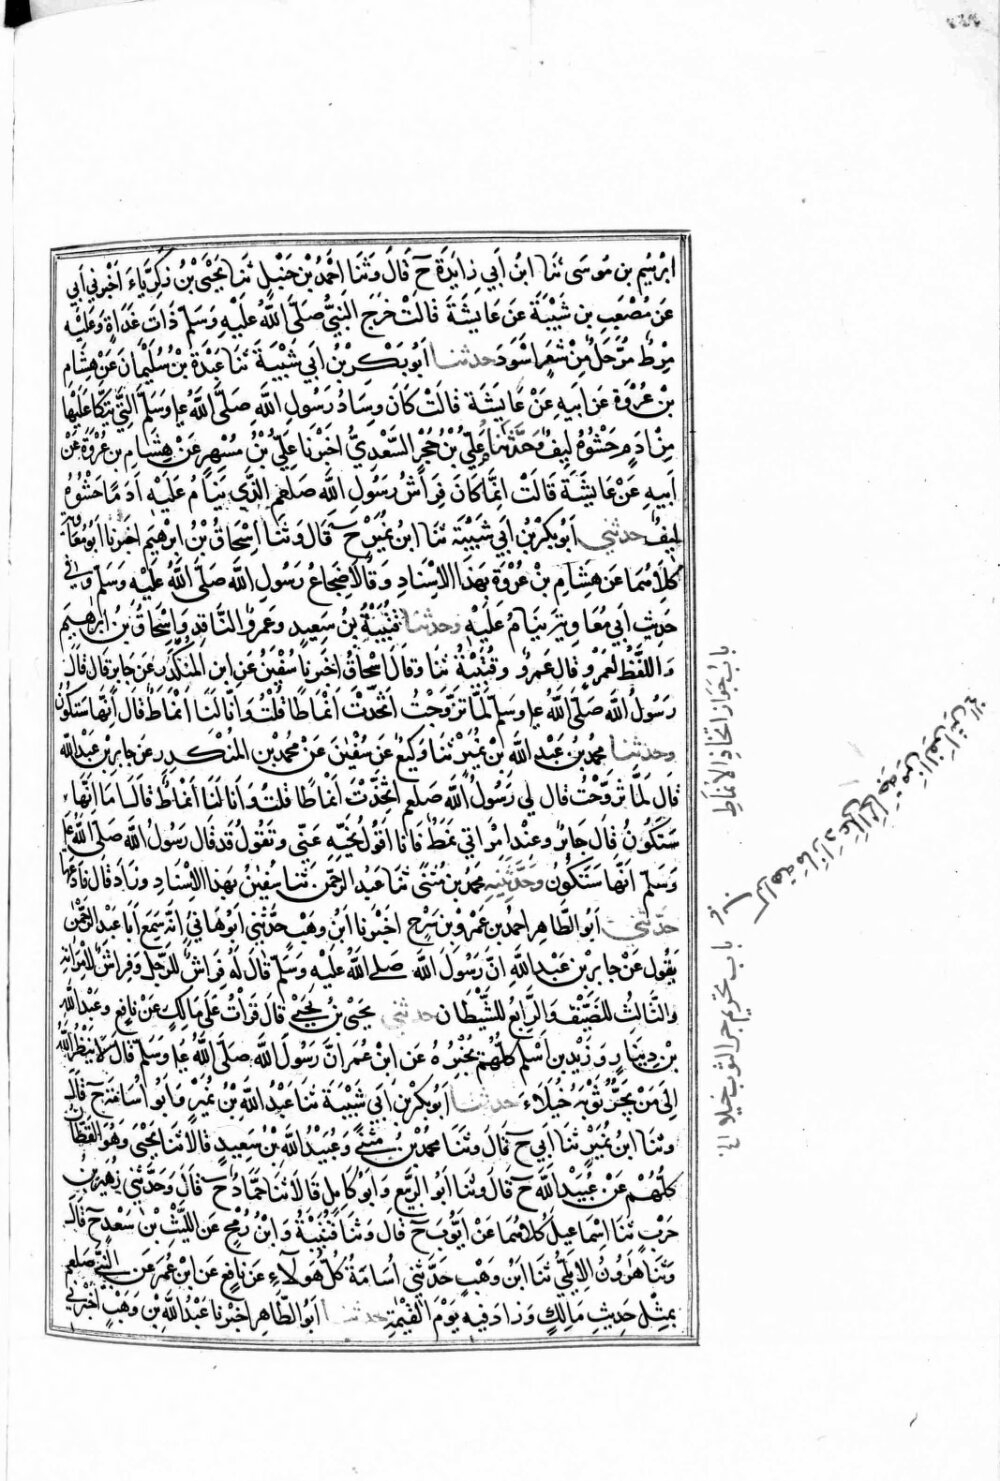 ابرهيم بن موسى ثنا ابن أبي زايدة ح قال وثنا احمد بن حنبل ثنا يحيى بن زكرياء اخبرني ابي
عن مصعب بن شيبة عن عايشة قالت خرج النبي صلى الله عليه وسلم ذات غداة وعليه
مرط مرحل من شعر اسود حدثنا ابو بكر بن ابي شيبة ثنا عبدة بن سليمان عن هشام
بن عروة عن ابيه عن عايشة قالت كان وساد رسول الله صلى الله عليه وسلم التي يتكأ عليها
من ادم حشوه ليف وحدثنا علي بن حجر السعدي اخبرنا علي بن مسهر عن هشام بن عروة عن
ابيه عن عايشة قالت انما كان فراش رسول الله صلعم الذي ينام عليه ادما حشوه
ليف حدثني ابو بكر بن ابي شيبة ثنا ابن نمير ح قال وثنا اسحاق بن ابرهيم اخبرنا ابو معاوية
كلاهما عن هشام بن عروة بهذا الاسناد وقالا ضجاع رسول الله صلى الله عليه وسلم وفي
حديث ابي معاوية ينام عليه وحدثنا قتيبة بن سعيد وعمرو الناقد واسحاق بن ابرهيم
واللفظ لعمرو قال عمرو وقتيبة ثنا وقال اسحاق اخبرنا سفين عن ابن المنكدر عن جابر قال قال
رسول الله صلى الله عليه وسلم لما تزوجت اتخذت انماطا قلت وانى لنا انماط قال انها ستكون
وحدثنا محمد بن عبد الله بن نمير ثنا وكيع عن سفين عن محمد بن المنكدر عن جابر بن عبد الله
قال لما تزوجت قال لي رسول الله صلعم اتخذت انماطا قلت وانى لنا انماط قال اما انها
ستكون قال جابر وعند امراتي نمط فانا اقول نحيه عني وتقول قد قال رسول الله صلى الله عليه
وسلم انها ستكون وحدثنيه محمد بن مثنى ثنا عبد الرحمن ثنا سفين بهذا الاسناد وزاد قال فادعها
حدثني ابو الطاهر احمد بن عمرو بن سرح اخبرنا ابن وهب حدثني ابو هاني انه سمع ابا عبد الرحمن
يقول عن جابر بن عبد الله ان رسول الله صلى الله عليه وسلم قال له فراش للرجل وفراش لامراته
والثالث للضيف والرابع للشيطان حدثني يحيى بن يحيى قال قرات على مالك عن نافع وعبد الله
بن دينار وزيد بن اسلم كلهم يخبره عن ابن عمر ان رسول الله صلى الله عليه وسلم قال لا ينظر الله
الى من يجر ثوبه خيلاء حدثنا ابو بكر بن ابي شيبة ثنا عبد الله بن نمير وابو اسامة ح قال
وثنا ابن نمير ثنا ابي ح قال وثنا محمد بن مثنى وعبيد الله بن سعيد قالا ثنا يحيى وهو القطان
كلهم عن عبيد الله ح قال وثنا ابو الربيع وابو كامل قالا ثنا حماد ح قال وحدثني زهير بن
حرب ثنا اسماعيل كلاهما عن ايوب ح قال وثنا قتيبة وابن رمح عن الليث بن سعد ح قال
وثنا هرون الايلي ثنا ابن وهب حدثني اسامة كل هولاء عن نافع عن ابن عمر عن النبي صلعم
بمثل حديث مالك وزاد فيه يوم القيمة حدثنا ابو الطاهر اخبرنا عبد الله بن وهب اخبرني
باب جواز اتخاذ الانماط
كراهة ما زاد على الحاجة من الفراش
باب تحريم جر الثوب خيلاء